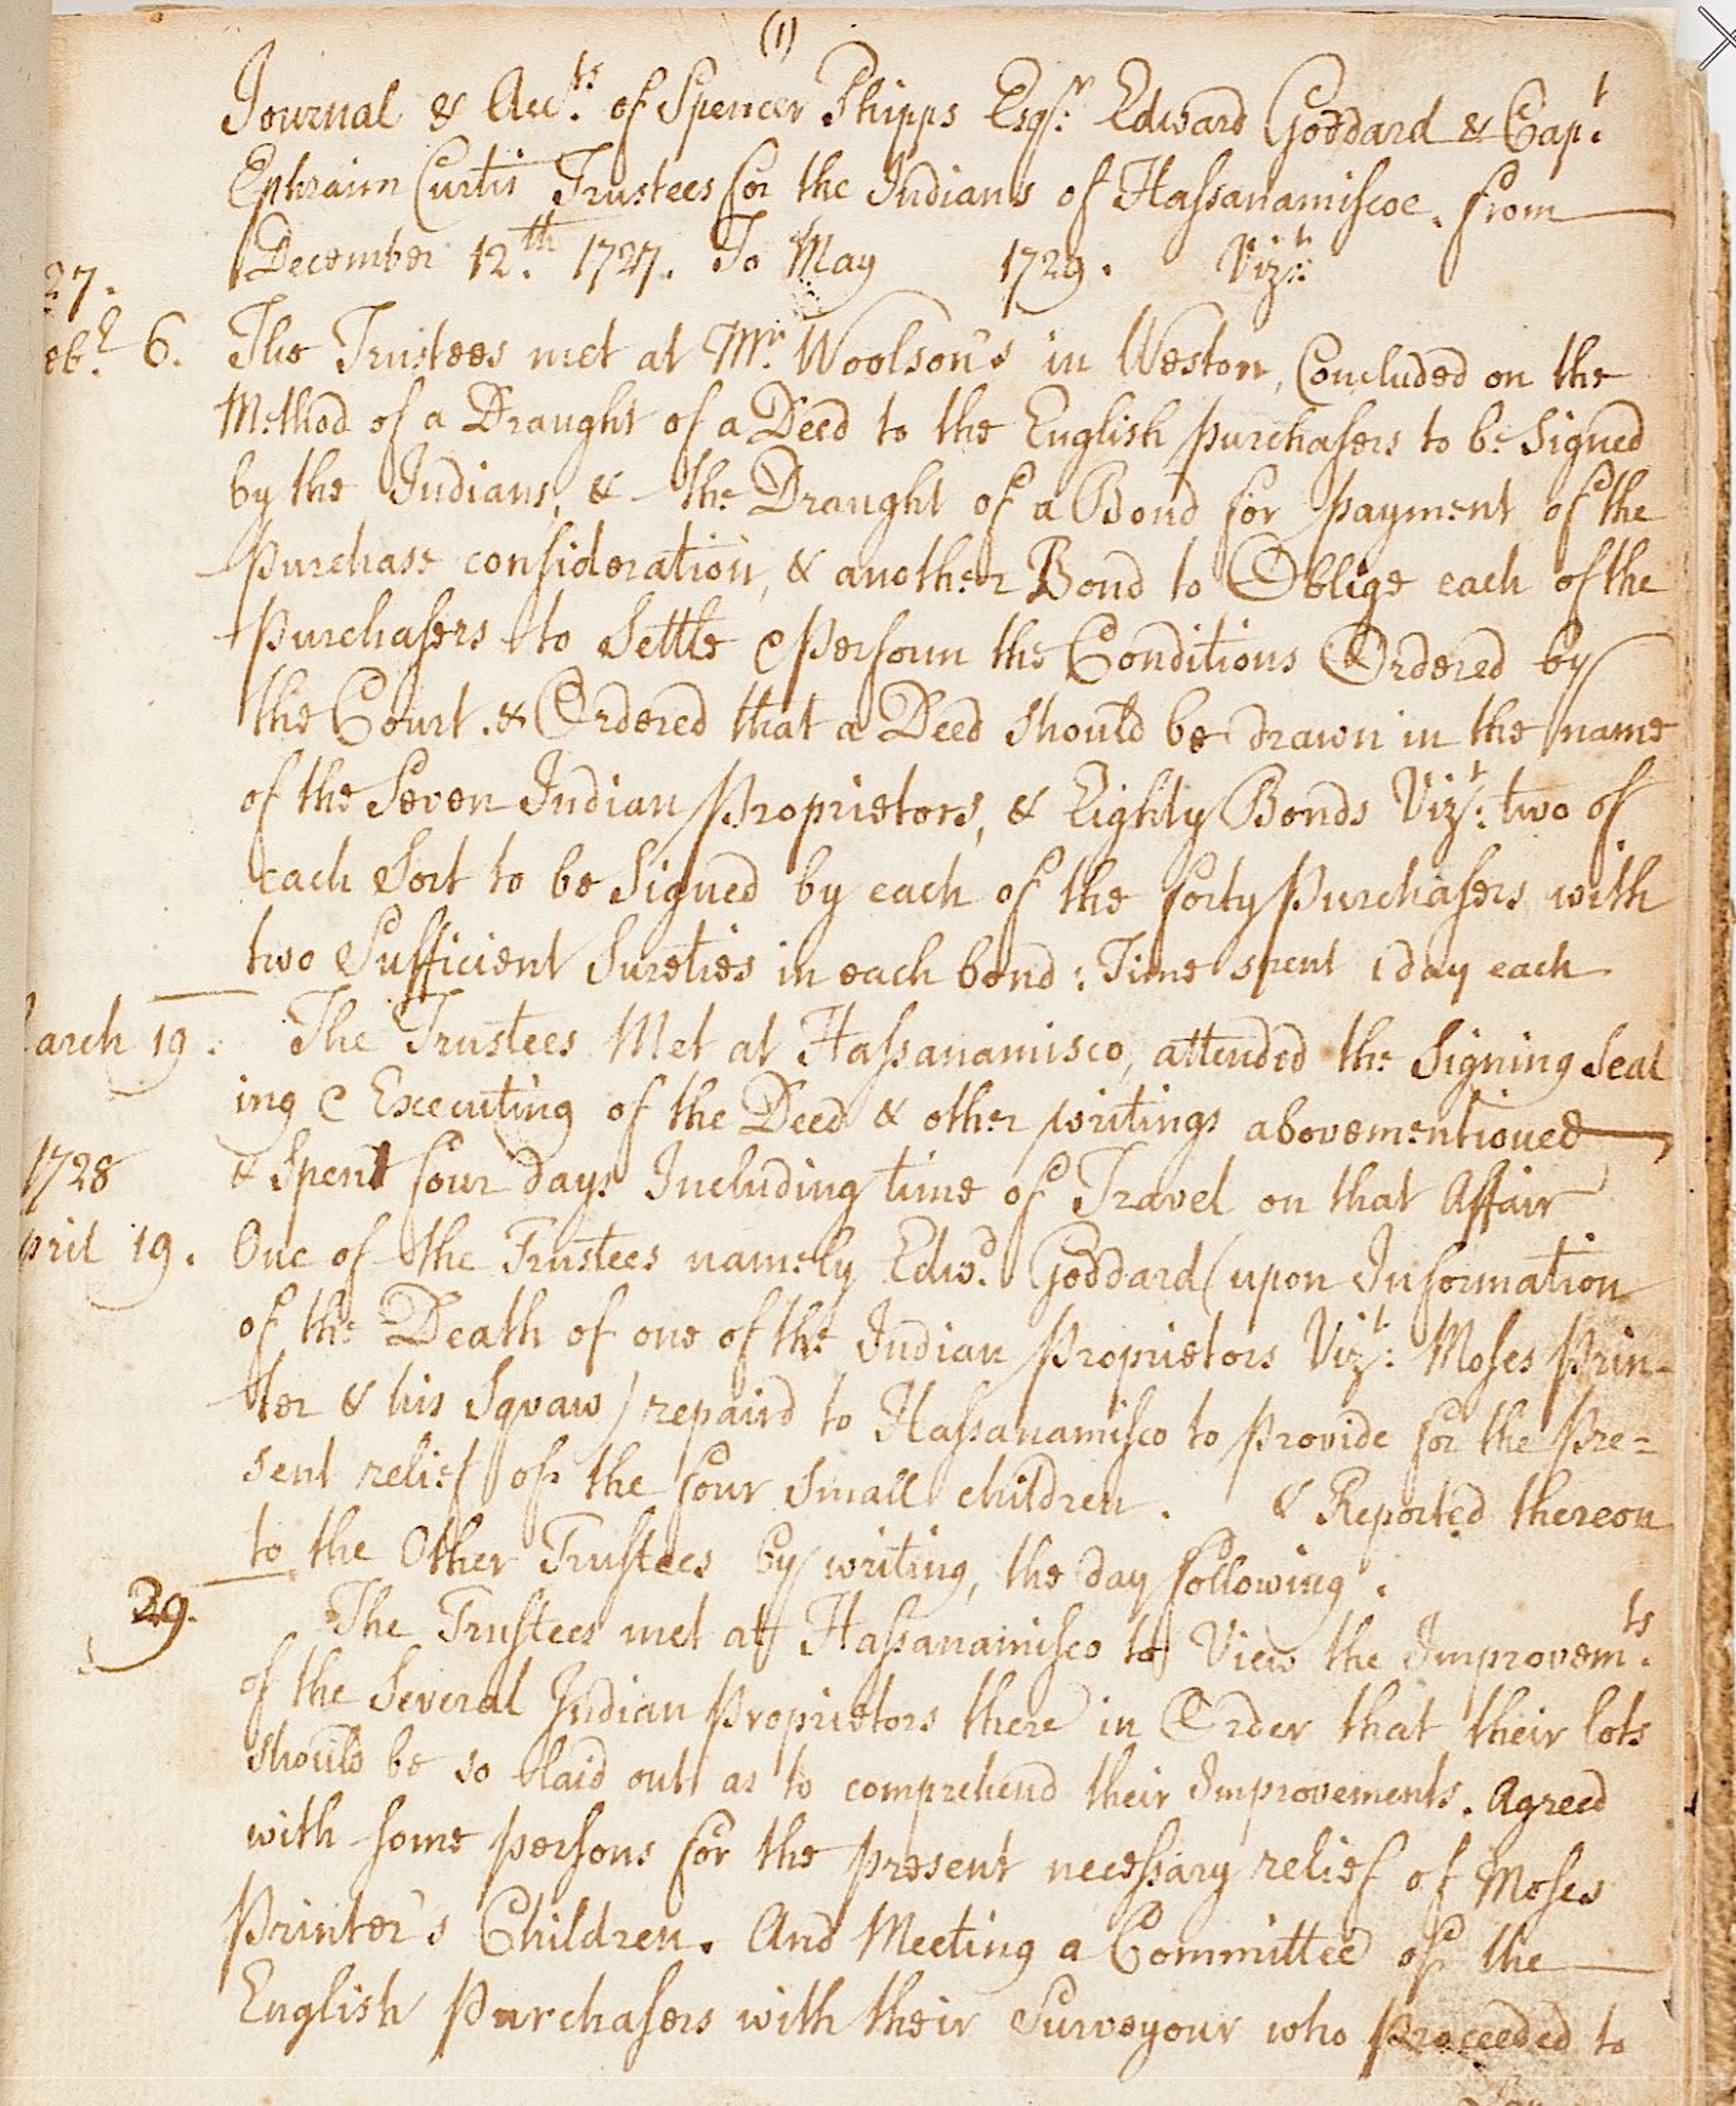 (1)
Journal & Accts. of Spencer Phipps Esqr. Edward Goddard & Capt.
Ephraim Curtis Trustees for the Indians of Hassanamiscoe. from
December 12.th 1727. To May 1729. Vizt:
27.
ebr. 6. The Trustees met at Mr. Woolson's in Weston, Concluded on the
Method of a Draught of a Deed to the English purchasers to be Signed
by the Indians, & the Draught of a Bond for payment of the
Purchase consideration, & another Bond to Oblige each of the
Purchasers to Settle & Perform the Conditions Ordered by
the Court. & Ordered that a Deed should be drawn in the name
of the Seven Indian Proprietors, & Eighty Bonds Vizt: two of
each Sort to be Signed by each of the forty Purchasers with
two Sufficient Sureties in each bond: Time spent 1 day each
arch 19. The Trustees Met at Hassanamisco, attended the Signing Seal
ing & Executing of the Deed & other writings abovementioned
1728 & Spent four days Including time of Travel on that Affair
pril 19. One of the Trustees namely Edwd. Goddard (upon Information
of the Death of one of the Indian Proprietors Vizt: Moses Prin-
ter & his Squaw) repaird to Hassanamisco to provide for the Pre=
sent relief of the four small children. & Reported thereon
to the Other Trustees by writing, the day following.
29. The Trustees met at Hassanamisco to View the Improvemts.
of the Several Indian Proprietors there in Order that their lots
should be so laid out as to comprehend their Improvements. Agreed
with some persons for the present necessary relief of Moses
Printer's Children. And Meeting a Committee of the
English Purchasers with their Surveyour who proceeded to